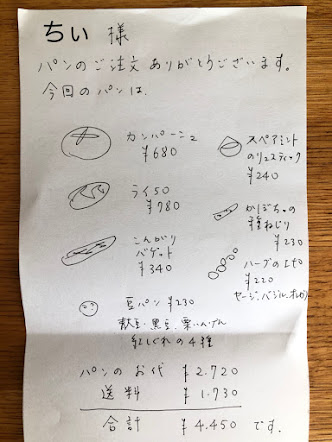 ちぃ 様
パンのご注文ありがとうございます。
今回のパンは、
カンパーニュ
¥680
ライ50
¥780
こんがり
バゲット
¥340
豆パン ¥230
黒豆、栗いんげん
紅しぐれの4種
スペアミント
のリュスティック
¥240
かぼちゃの
種ねじり
¥230
ハーブのエピ
¥220
セージ、バジル、オレガノ
パンのお代 ¥2.720
送料 ¥1.730
合計 ¥4.450 です。